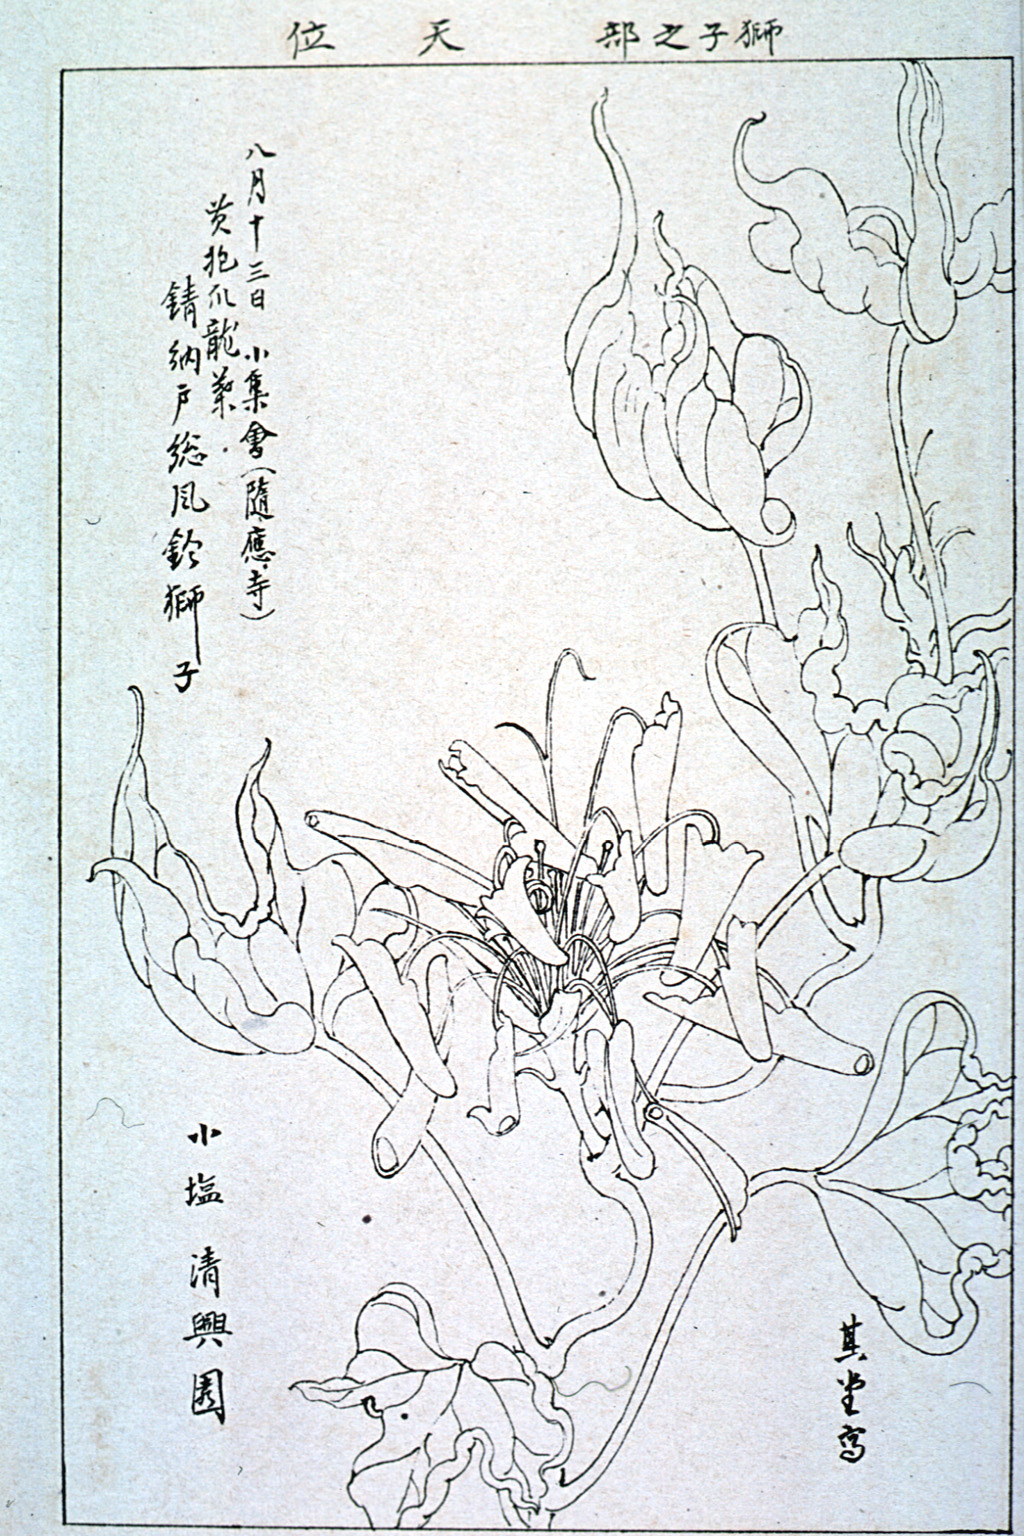 獅子之部 天位
八月十三日 小集會(隨應寺)
黄抱爪龍葉
錆納戸総風鈴獅子
小塩 清興園
其堂寫